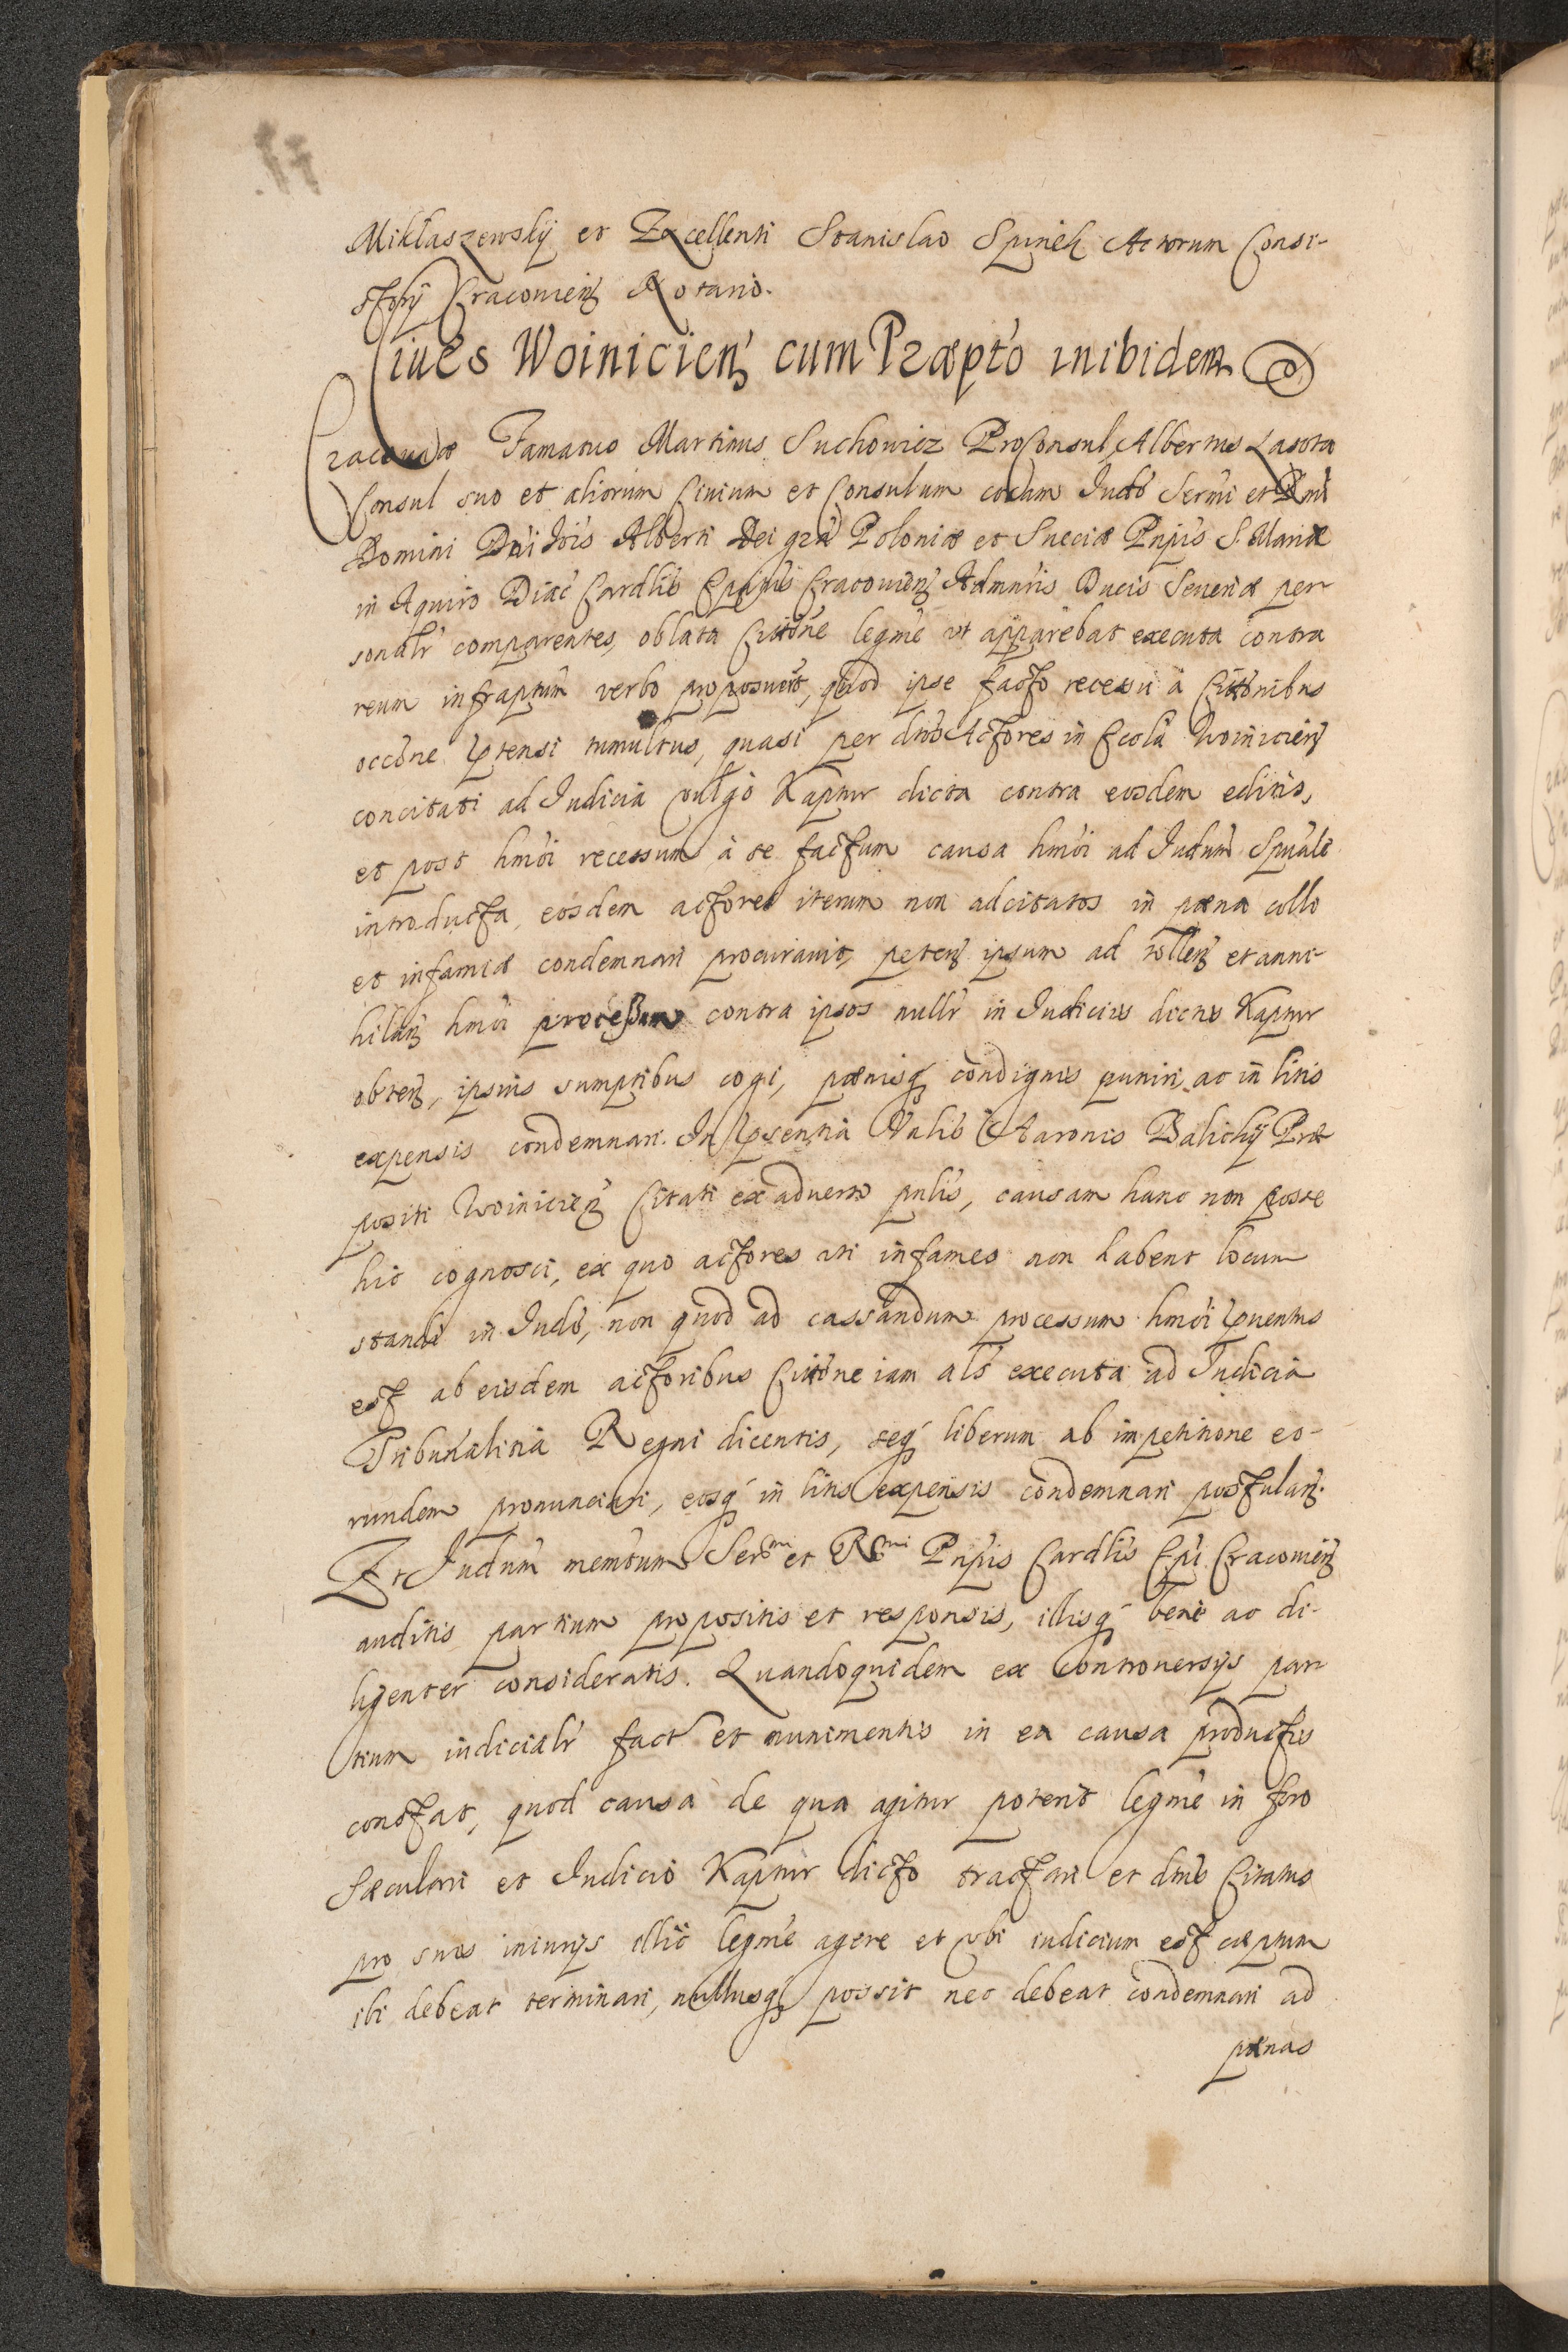 Mikłaszewskij et Excellenti Stanislao Spinek Actorum Consi-
storij Cracouień Notario.
Ciues Woinicień cum Præpto inibidem
Cracouiæ Famatus Martinus Suchowicz ProConsul, Albertus Lasota
Consul suo et aliorum Ciuium et Consulum coram Judõ Sermi et Rmi
Domini Dñi Jois Alberti Dei gra Poloniæ et Sueciæ Pnpis S. Mariæ
in Aquiro Diac Cardlis Epatus Cracouień Admnris Ducis Seueriæ per
sonalr comparentes, oblata Cittone legme vt apparebat executa contra
reum infraptum verbo proposuerũt, quod ipse facto recessu a Cittonibus
occõne prtensi tumultus, quasi per dnos Actores in Ecclã Woinicień
concitati ad Judicia vulgo Kaptur dicta contra eosdem editis,
et post hmoi recessum à se factum causa hmoi ad Judum Spuale
introducta, eosdem actores iterum non adcitatos in pæna collo
et infamiæ condemnari procurauit, peteñ ipsum ad tolleñ et anni-
hilań hmoi processum contra ipsos nullr in Judiciis dictis Kaptur
obteñ, ipsius sumptibus cogi, pænisq condignis puniri, ac in litis
expensis condemnari. In prsentia Nalis Aaronis Balickij Præ
positi Woinicień Citati ex aduerso pnlis, causam hanc non posse
hic cognosci, ex quo actores uti infames non habent locum
standi in Judõ, non quod ad cassandum processum hmoi pruentus
est ab eisdem actoribus Cittone iam als executa ad Judicia
Tribunalitia Regni dicentis, seq liberum ab impetitione eo-
rundem pronunciari, eosq in litis expensis condemnari postulań.
Et Judum memtum Sermi et Rmi Pnpis Cardlis Epi Cracouień
auditis partium propositis et responsis, illisq bene ac di-
ligenter consideratis. Quandoquidem ex controuersijs par
tium iudicialr fact et munimentis in ea causa productis
constat, quod causa de qua agitur poterit legme in foro
Sæculari et Judicio Kaptur dicto tractari et dnus Citatus
pro suis iniurijs illic legme agere et vbi iudicium est cæptum
ibi debeat terminari, nullusq possit nec debeat condemnari ad
pænas